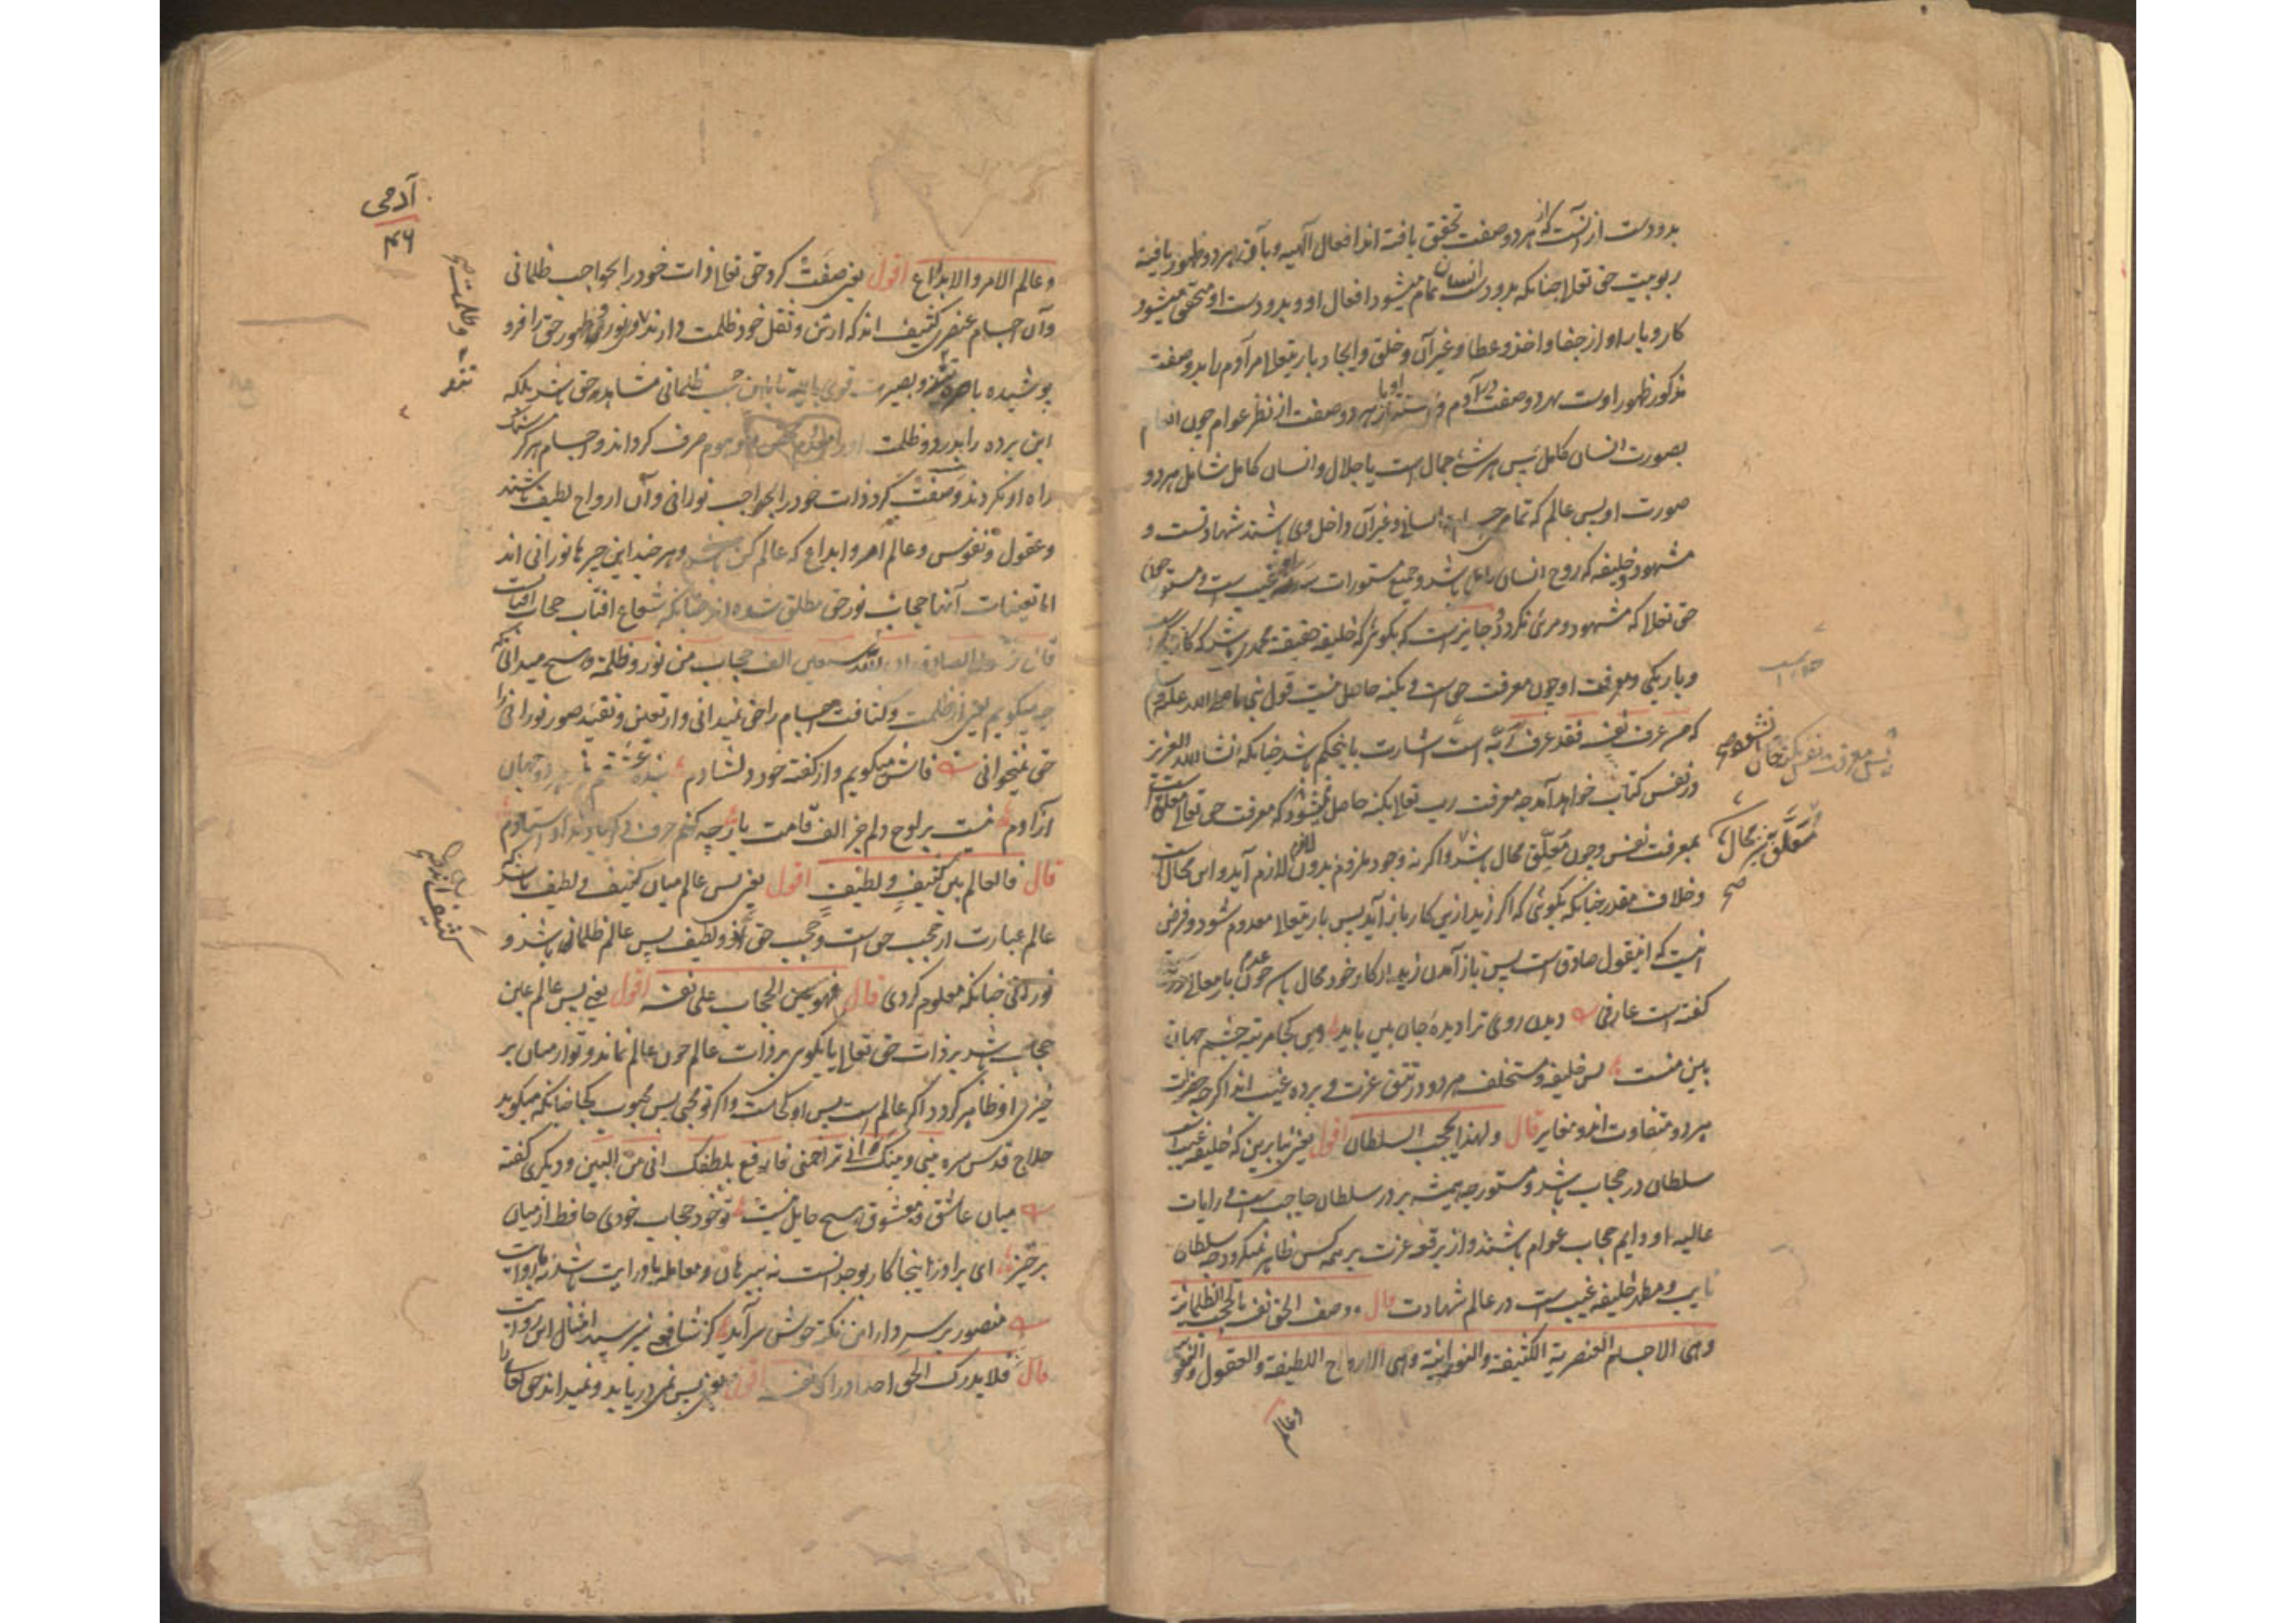 بدو دست از آنست که از هر دو صفت تحقق یافته اند افعال الهیه و بآن هر دو ظهور یافته
ربوبیت حق تعلا چنانکه بدو دست انسان تمام میشود افعال او و بدو دست او متحقق میشود
کار و بار او از جفا و اخذ و عطا و غیر آن و خلق و ایجاد باریتعالا مر آدم را بدو صفت
مذکور ظهور اوست بهر دو صفت در آدم از هر دو صفت از نظر عوام چون
بصورت انسان کامل پس هر شئ جمال است یا جلال و انسان کامل شامل هر دو
صورت او پس عالم که تمام و غیر آن داخل وی باشند شهادتست و
مشهود و خلیفه که روح انسان کامل باشد و جمیع مستورات غیب است و مستور
حق تعلا که مشهود و مرئی نکردد و جایز است که بکوئی که خلیفه حقیقة محمدی باشد که
و باریکی و معرفت او چون معرفت حق است و بکنه حاصل نیست قول نبی ما صلی الله علیه و
که من عرف نفسه فقد عرف ربه است اشارت باینحکم باشد چنانکه انشا الله العزیز
در نفس کتاب خواهد آمد چه معرفت رب تعالی بکنه حاصل نمیشود که معرفت حق تعالی معلق است
بمعرفت نفس و چون معلق محال باشد و اکر نه وجود ملزوم بدون لازم لازم آید و این محال است
و خلاف مقدر چنانکه بکوئی که اکر زید ازین کار باز آید پس باریتعلا معدوم شود و فرض
اینست که اینقول صادق است پس باز آمدن زید از کار خود محال باشد چون عدم باریتعالی
کفته است عارفی دیدن روی ترا دیده جان بین باید وین کجا مرتبه چشم جهان
بین منست پس خلیفه و مستخلف هر دو در تتق عزت و پرده غیب اند اکر چه
هر دو متفاوت اند و مغایر قال و لهذا یحجب السلطان اقول یعنی بنا برین که خلیفه غیب است
سلطان در حجاب باشد و مستور چه همیشه بر در سلطان حاجب است و رایات
عالیه او دایم حجاب عوام باشند و از برقعه عزت بر همه کس ظاهر نمیکردد چه سلطان
نایب و مظهر خلیفه غیب است در عالم شهادت قال و وصف الحق نفسه بالحجب الظلمانیة
وهی الاجسام العنصریة الکثیفة والنورانیة وهی الارواح اللطیفة والعقول والنفوس
وعالم
معلق نیز محال
صح
آدمی
۴۶
وعالم الامر والابداع اقول یعنی صفت کرد حق تعالی ذات خود را بحواجب ظلمانی
و آن اجسام عنصری کثیف اند که از تن و ثقل خود ظلمت دارند و نور ظهور حق را فرو
پوشیده ظلمانی مشاهد حق باشد بلکه
این پرده را بدرد و ظلمت صرف کرداند و اجسام هرکز
راه او نکردند و صفت کرد ذات خود را بحواجب نورانی و آن ارواح لطیف باشند
و عقول و نفوس و عالم امر و ابداع که عالم کن باشد و هر چند این چیزها نورانی اند
اما تعینات آنها حجاب نور حق مطلق شده اند چنانکه شعاع افتاب حجاب افتاب است
سبعین الف حجاب من نور و ظلمة و هیچ میدانی که
چه میکویم یعنی از ظلمت و کثافت اجسام راحق نمیدانی و از تعین و تقید صور نورانی را
حق نمیخوانی فاش میکویم و از کفته خود دلشادم بنده عشقم و از هر دو جهان
آزادم نیست بر لوح دلم جز الف قامت یار چه کنم حرف دکر یاد نداد استادم
قال فالعالم بین کثیف و لطیف اقول یعنی پس عالم میان کثیف و لطیف باشد
عالم عبارت از حجب حق است و حجب حق و لطیف پس عالم ظلمانی باشد و
نورانی چنانکه معلوم کردی قال فهو عین الحجاب علی نفسه اقول یعنی پس عالم عین
حجاب باشد بر ذات حق تعالی یا بکوی بر ذات عالم چون عالم نماند و تو از میان بر
خیزی او ظاهر کردد اکر عالم است پس او کجاست و اکر تو محبی پس محبوب کجا چنانکه میکوید
حلاج قدس سره بینی و بینک انی تزاحمنی فارفع بلطفک انی من البین و دیکری کفته
میان عاشق و معشوق هیچ حایل نیست تو خود حجاب خودی حافظ از میان
برخیز ای برادر اینجا کار بوجدانست نه ببرهان و معامله با درایت باشد نه با روایت
منصور بر سر دار این نکته خوش سرآید کز شافعی نپرسید امثال این روایت
قال فلا یدرک الحق احد ادراکه نفسه اقول یعنی پس نمی دریابد و نمیداند حق تعالی را